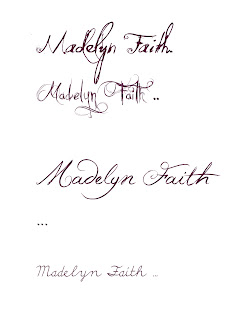 Madelyn Faith.
Madelyn Faith ..
Madelyn Faith
...
Madelyn Faith ...